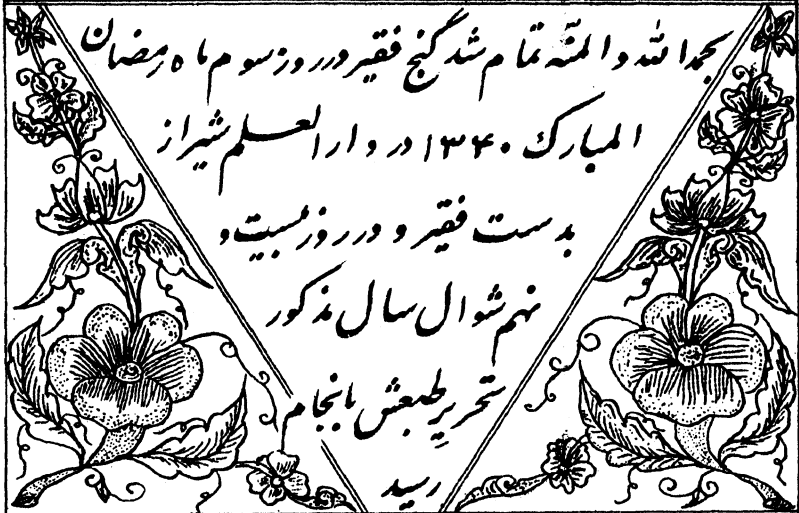 بحمدالله والمنّه تمام شد گنج فقیر در روز سوم ماه رمضان
المبارک ۱۳۴۰ در دارالعلم شیراز
بدست فقیر و در روز بیست و
نهم شوال سال مذکور
تحریر طبعش بانجام
رسید